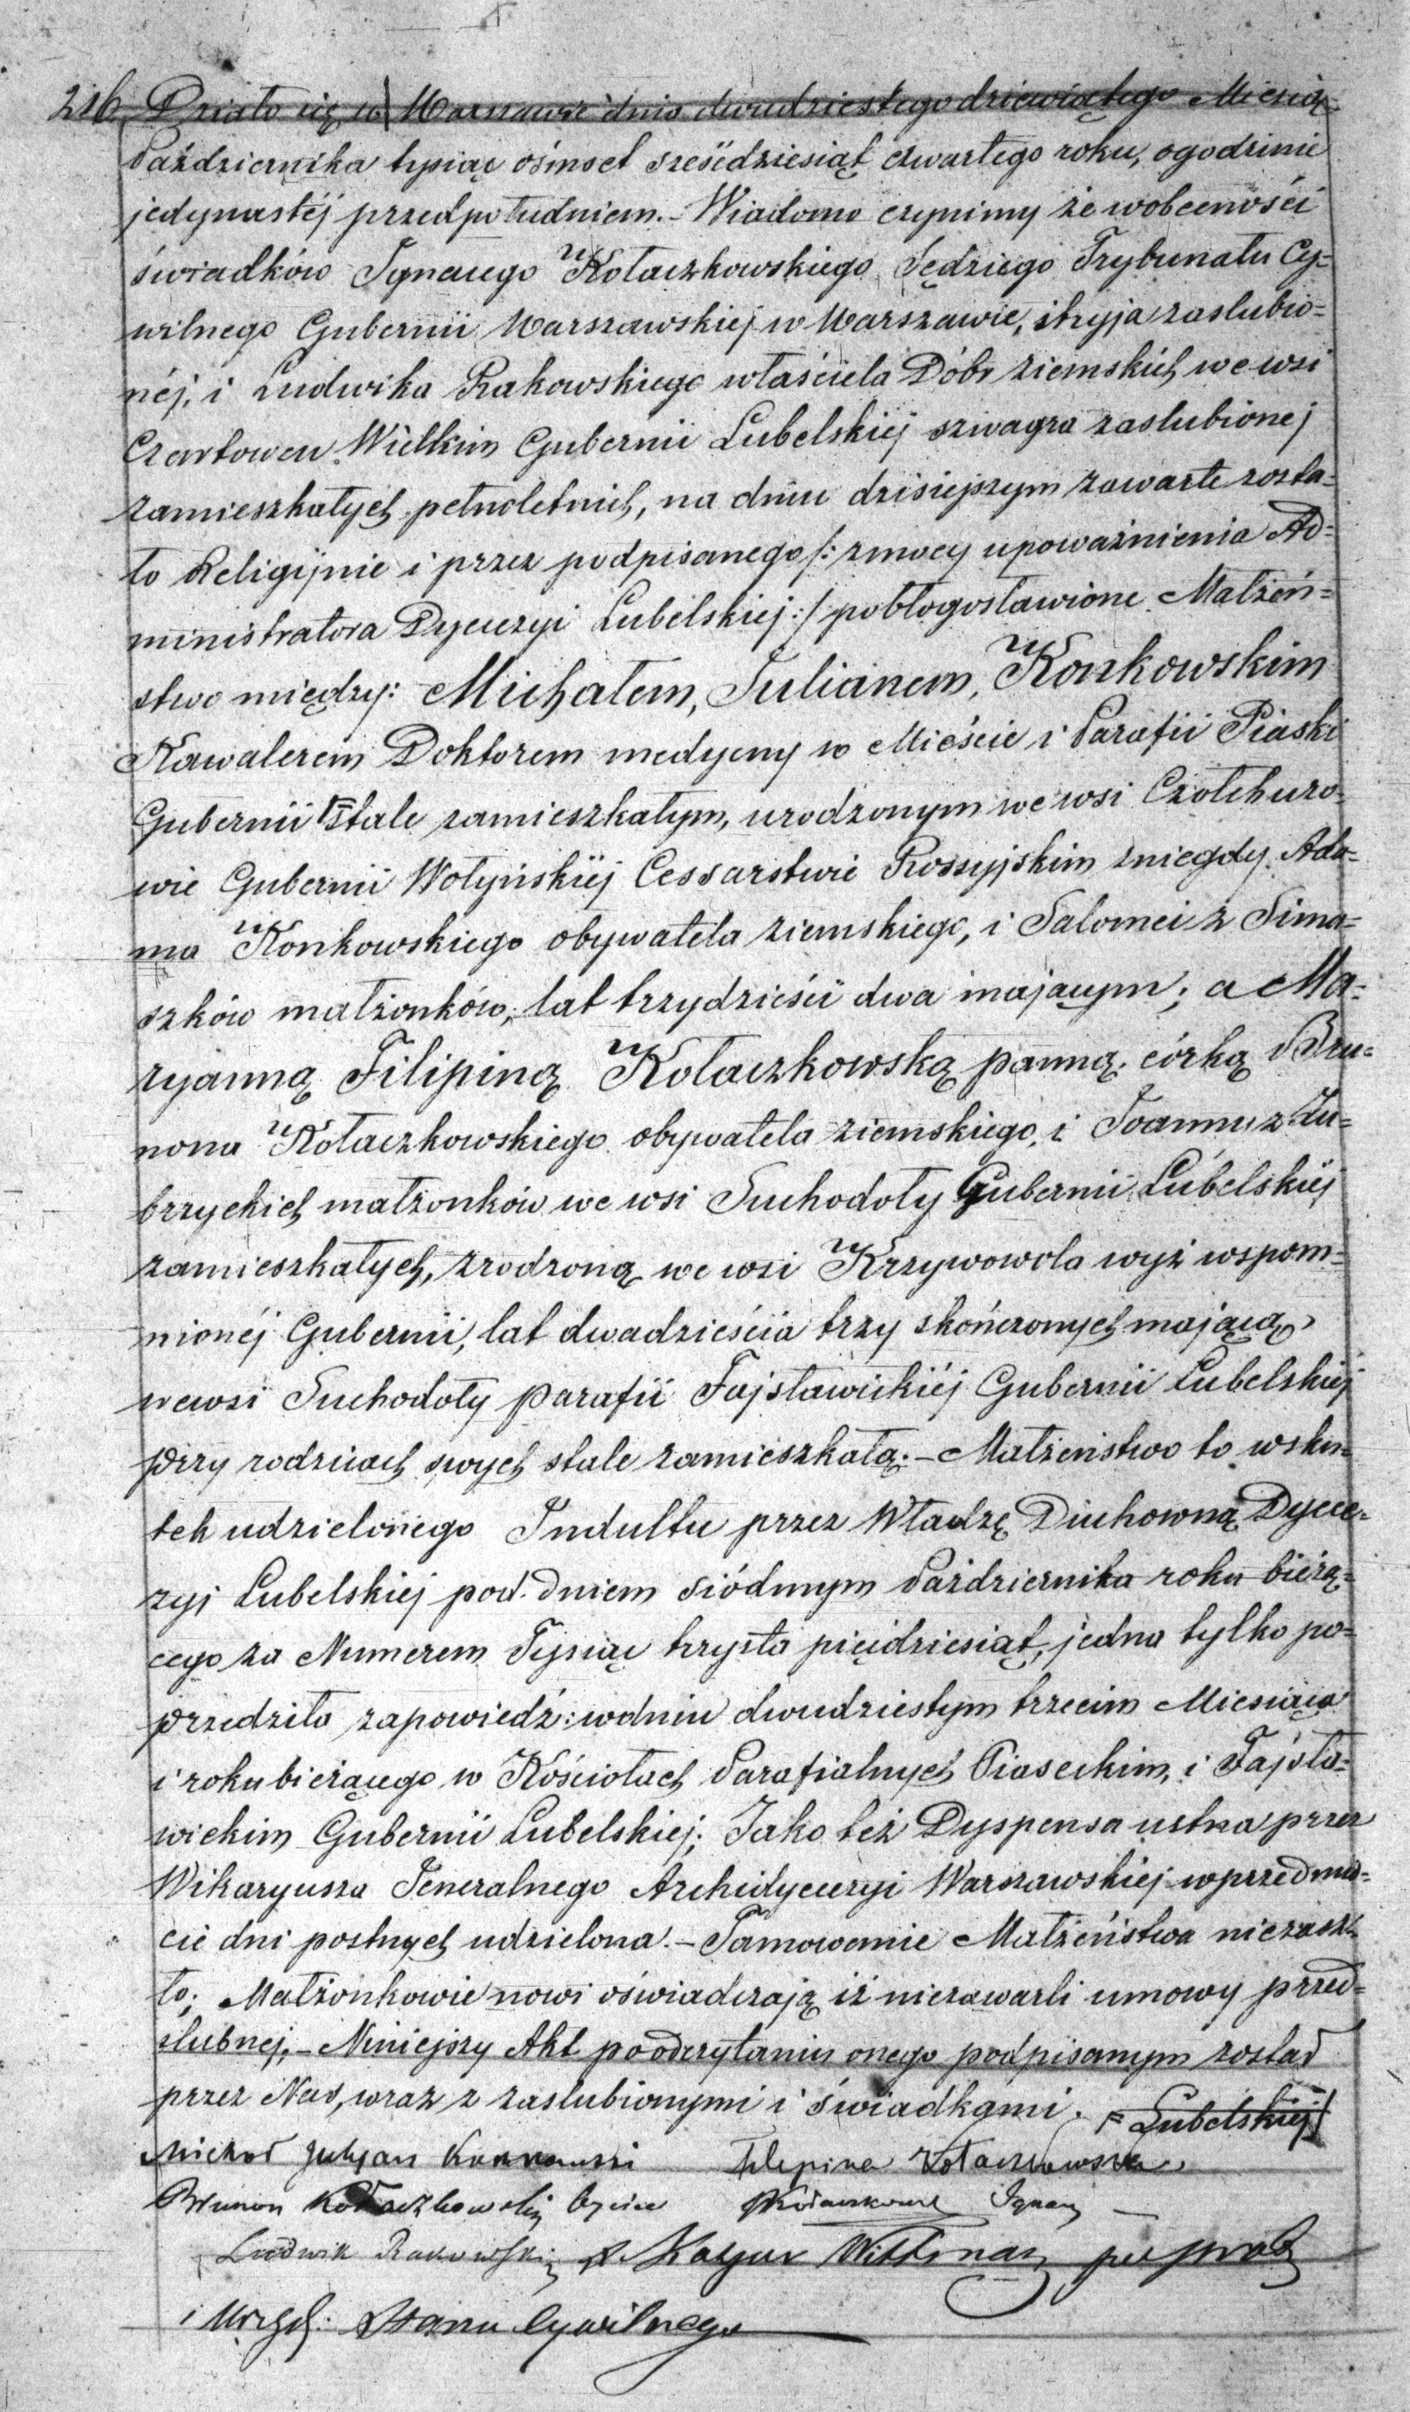 216 Działo się w Warszawie dnia dwudziestego dziewiątego Miesiąca
Października tysiąc ośmset sześćdziesiąt czwartego roku, o godzinie
jedynastéj przedpołudniem. – Wiadomo czynimy że wobecności
świadków Ignacego Kołaczkowskiego Sędziego Trybunału Cy=
wilnego Gubernii Warszawskiej w Warszawie, stryja zaslubio=
néj, i Ludwika Rakowskiego właściciela Dóbr ziemskich we wsi
Czartowcu Wielkim Gubernii Lubelskiej szwagra zaslubionej
zamieszkałych pełnoletnich, na dniu dzisiejszym zawarte zosta=
ło Religijnie i przez podpisanego /: z mocy upoważnienia Ad=
ministratora Dyecezyi Lubelskiej :/ pobłogosławione Małżeń=
stwo między: Michałem, Julianem, Konkowskim
Kawalerem Doktorem medycyny w Mieście i Parafii Piaski
Gubernii stale zamieszkałym, urodzonym we wsi
wie Gubernii Wołyńskiéj Cessarstwie Rossyjskim z niegdy Ada=
ma Konkowskiego obywatela ziemskiego, i Salomei z Sima=
szków małżonków, lat trzydzieści dwa mającym; a Ma=
ryanną Filipiną Kołaczkowską panną, córką Bru=
nona Kołaczkowskiego obywatela ziemskiego, i Joanny z Du=
brzyckich małżonków we wsi Suchodoły Gubernii Lubelskiéj
zamieszkałych, zrodzoną we wsi Krzywowola wyż wspom=
nionéj Gubernii, lat dwadzieścia trzy skończonych mającą,
we wsi Suchodoły Parafii Fajsławickiéj Gubernii Lubelskiéj
przy rodzicach swych stale zamieszkałą. – Małżeństwo to wsku=
tek udzielonego Indultu przez Władzę Duchowną Dyece=
zyi Lubelskiej pod dniem siódmym Października roku bieżą=
cego za Numerem Tysiąc trzysta pięćdziesiąt, jedna tylko po=
przedziła zapowiedź: w dniu dwudziestym trzecim Miesiąca
i roku bieżącego w Kościołach Parafialnych Piaseckim, i Fajsła=
wickim Gubernii Lubelskiej; Jako też Dyspensa ustna przez
Wikaryusza Jeneralnego Archidyecezyi Warszawskiej w przedmio=
cie dni postnych udzielona. – Tamowanie Małżeństwa niezasz=
ło; Małżonkowie nowi oświadczają iż niezawarli umowy przed=
slubnej. – Niniejszy Akt po odczytaniu onego podpisanym został
przez Nas, wraz z zaslubionymi i świadkami. Lubelskiej
Michał Julyan Konkowski Filipina Kołaczkowska
Brunon Kołaczkowski Ojciec Kołaczkowski Ignacy
Ludwik Rakowski X. Kacper Wittman
i Urzęd: Stanu Cywilnego